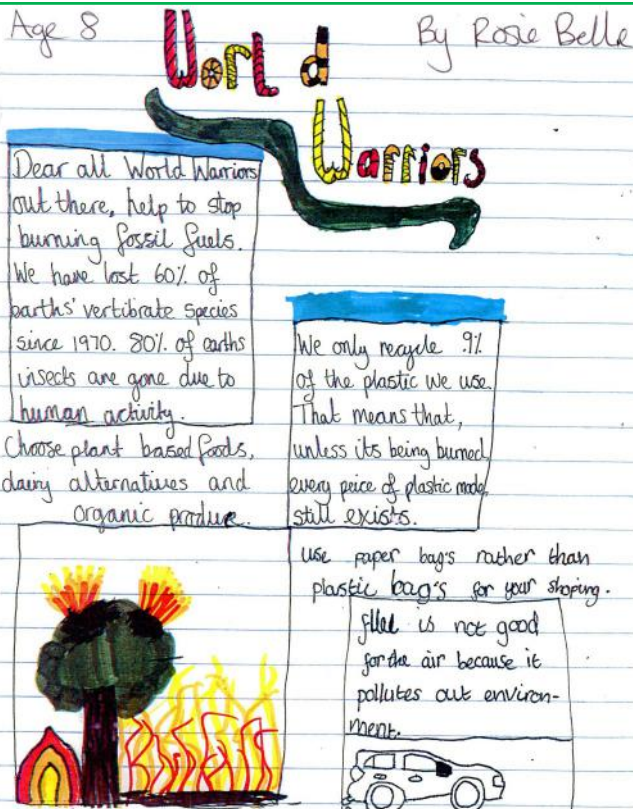 Age 8
By Rosie Belle
World
Warriors
Dear all World Warriors
out there, help to stop
burning fossil fuels.
We have lost 60% of
earths' vertibrate species
since 1970. 80% of earths
insects are gone due to
human activity.
Choose plant based foods,
dairy alternatives and
organic produce.
We only recycle .9%
of the plastic we use.
That means that,
unless its being burned,
every peice of plastic made,
still exists.
use paper bag's rather than
plastic bag's for your shoping.
is not good
for the air because it
pollutes out environ-
ment.